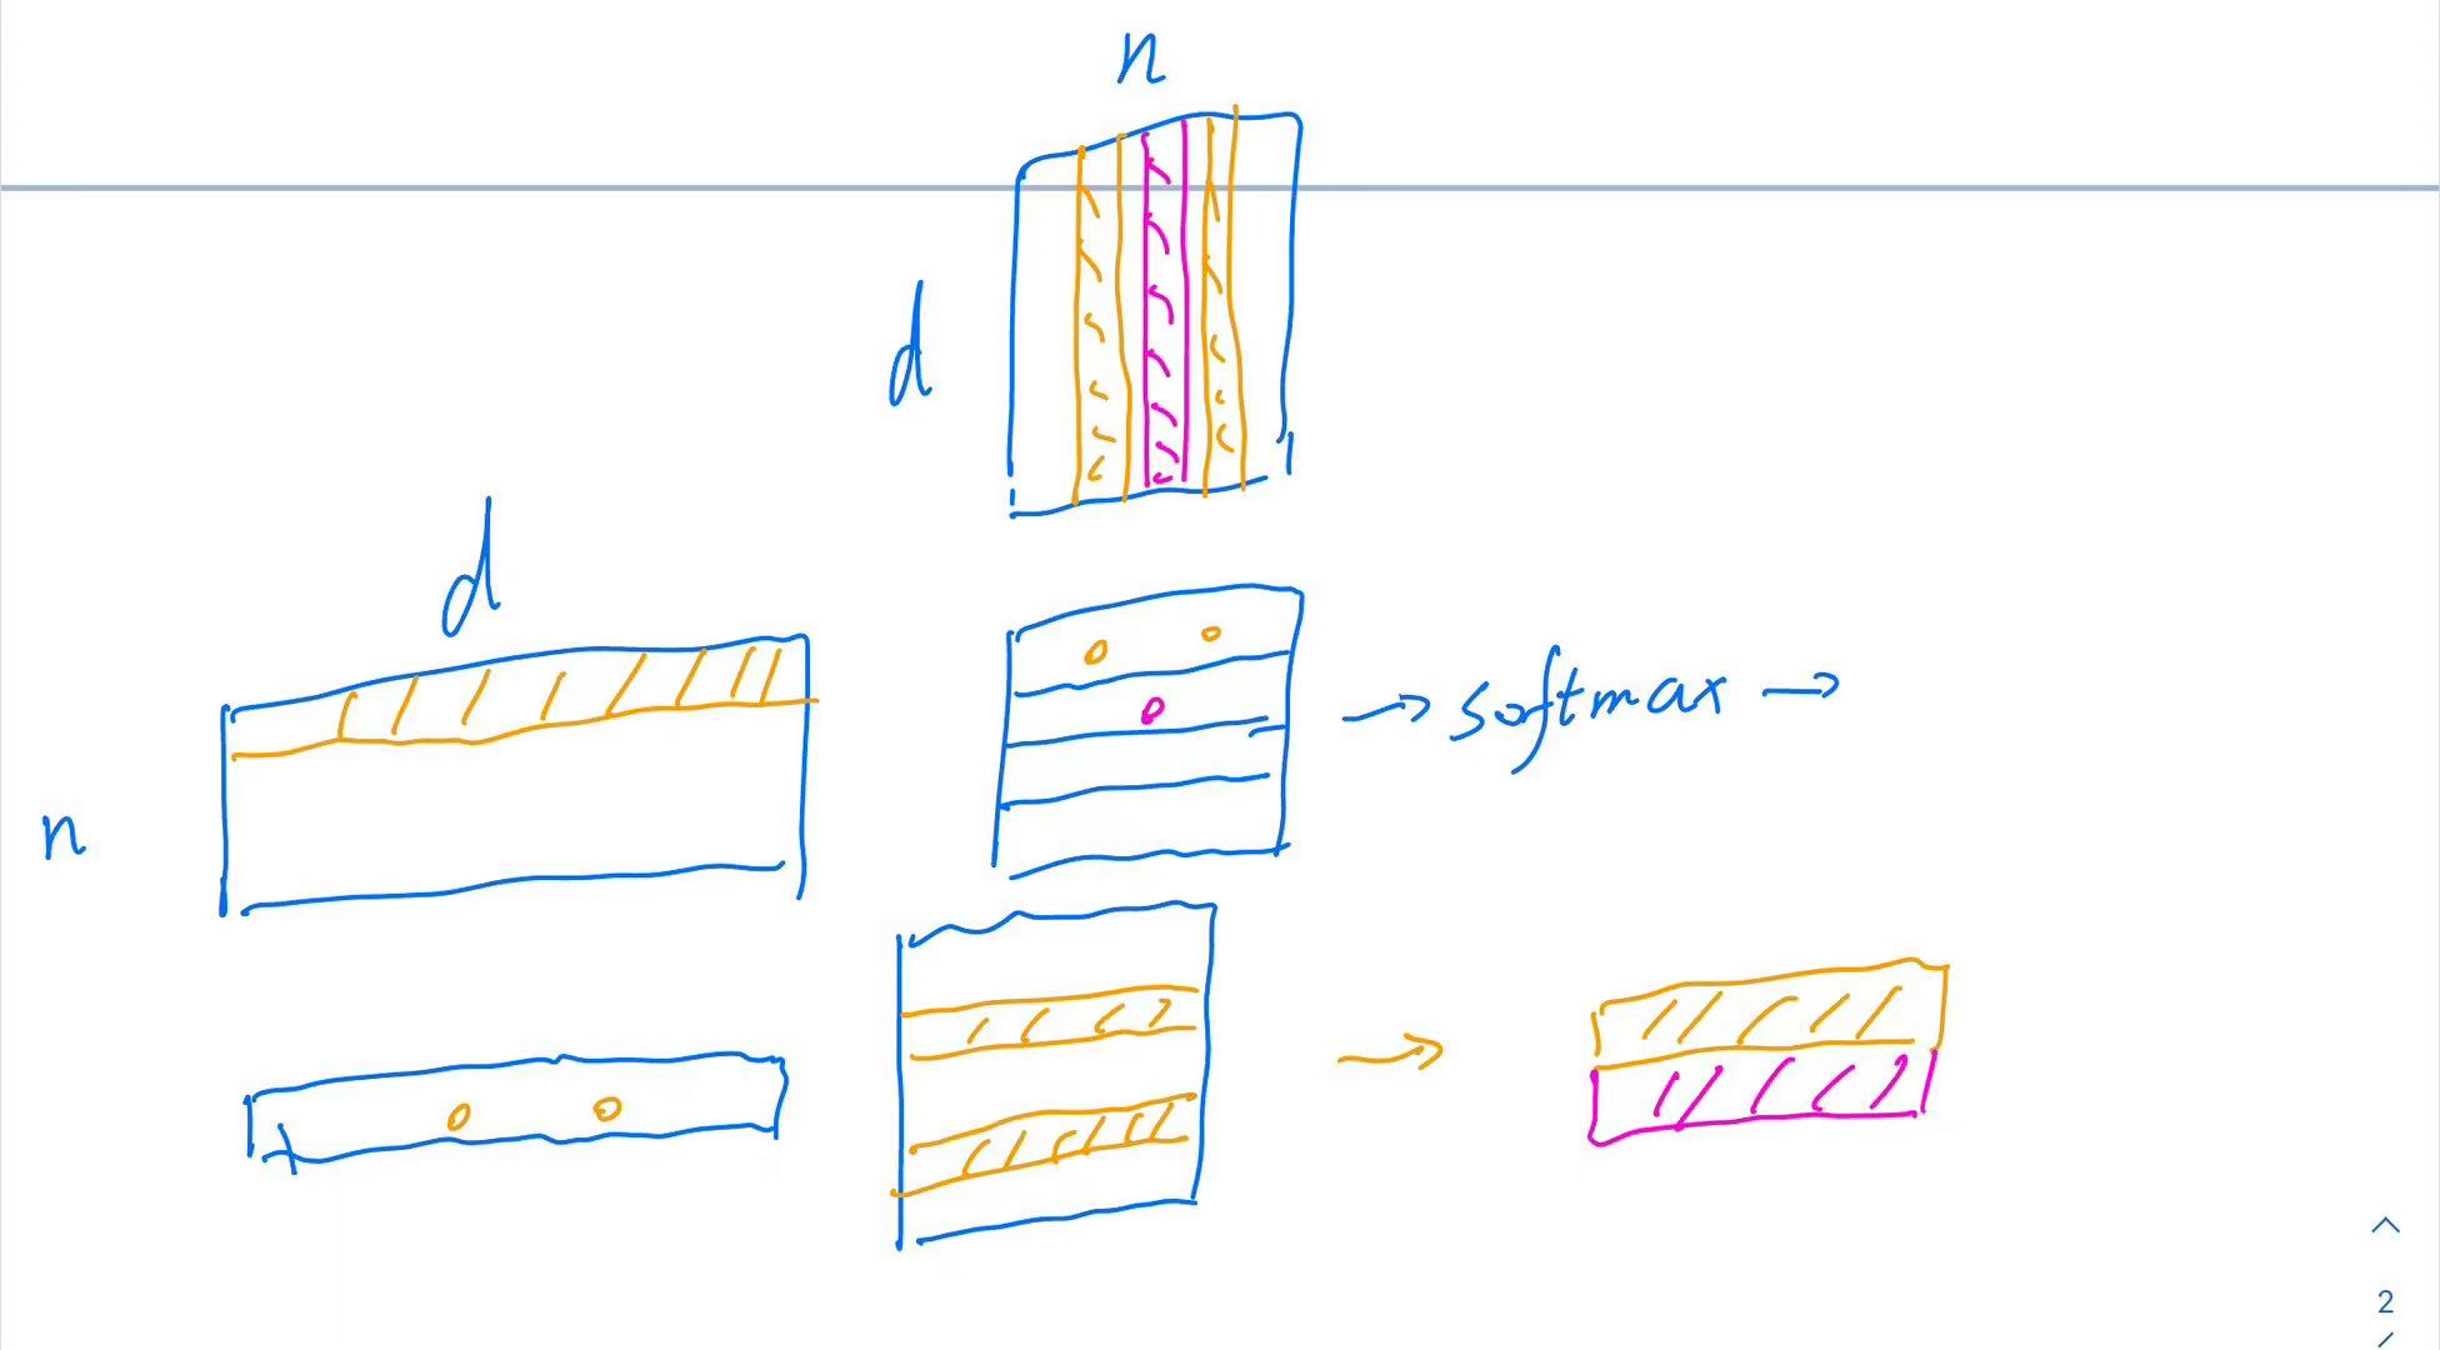 n
d
d
→ softmax →
n
→
2